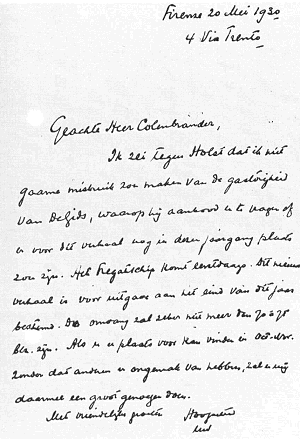 Firenze 20 Mei 1930
4 Via Trento
Geachte Heer Colenbrander,
Ik zei tegen Holst dat ik niet
gaarne misbruik zou maken van de gastvrijheid
van De Gids, waarop hij aanbood u te vragen of
u voor dit verhaal nog in dezen jaargang plaats
zou zijn. Het Fregatschip komt eerstdaags. Dit nieuwe
verhaal is voor uitgave aan het eind van dit jaar
bestemd. De omvang zal zeker niet meer dan
blz. zijn. Als u er plaats voor kan vinden in Oct.-Nov.
zonder dat anderen er ongemak van hebben, zal u mij
daarmee een groot genoegen doen.
Met vriendelijke groeten